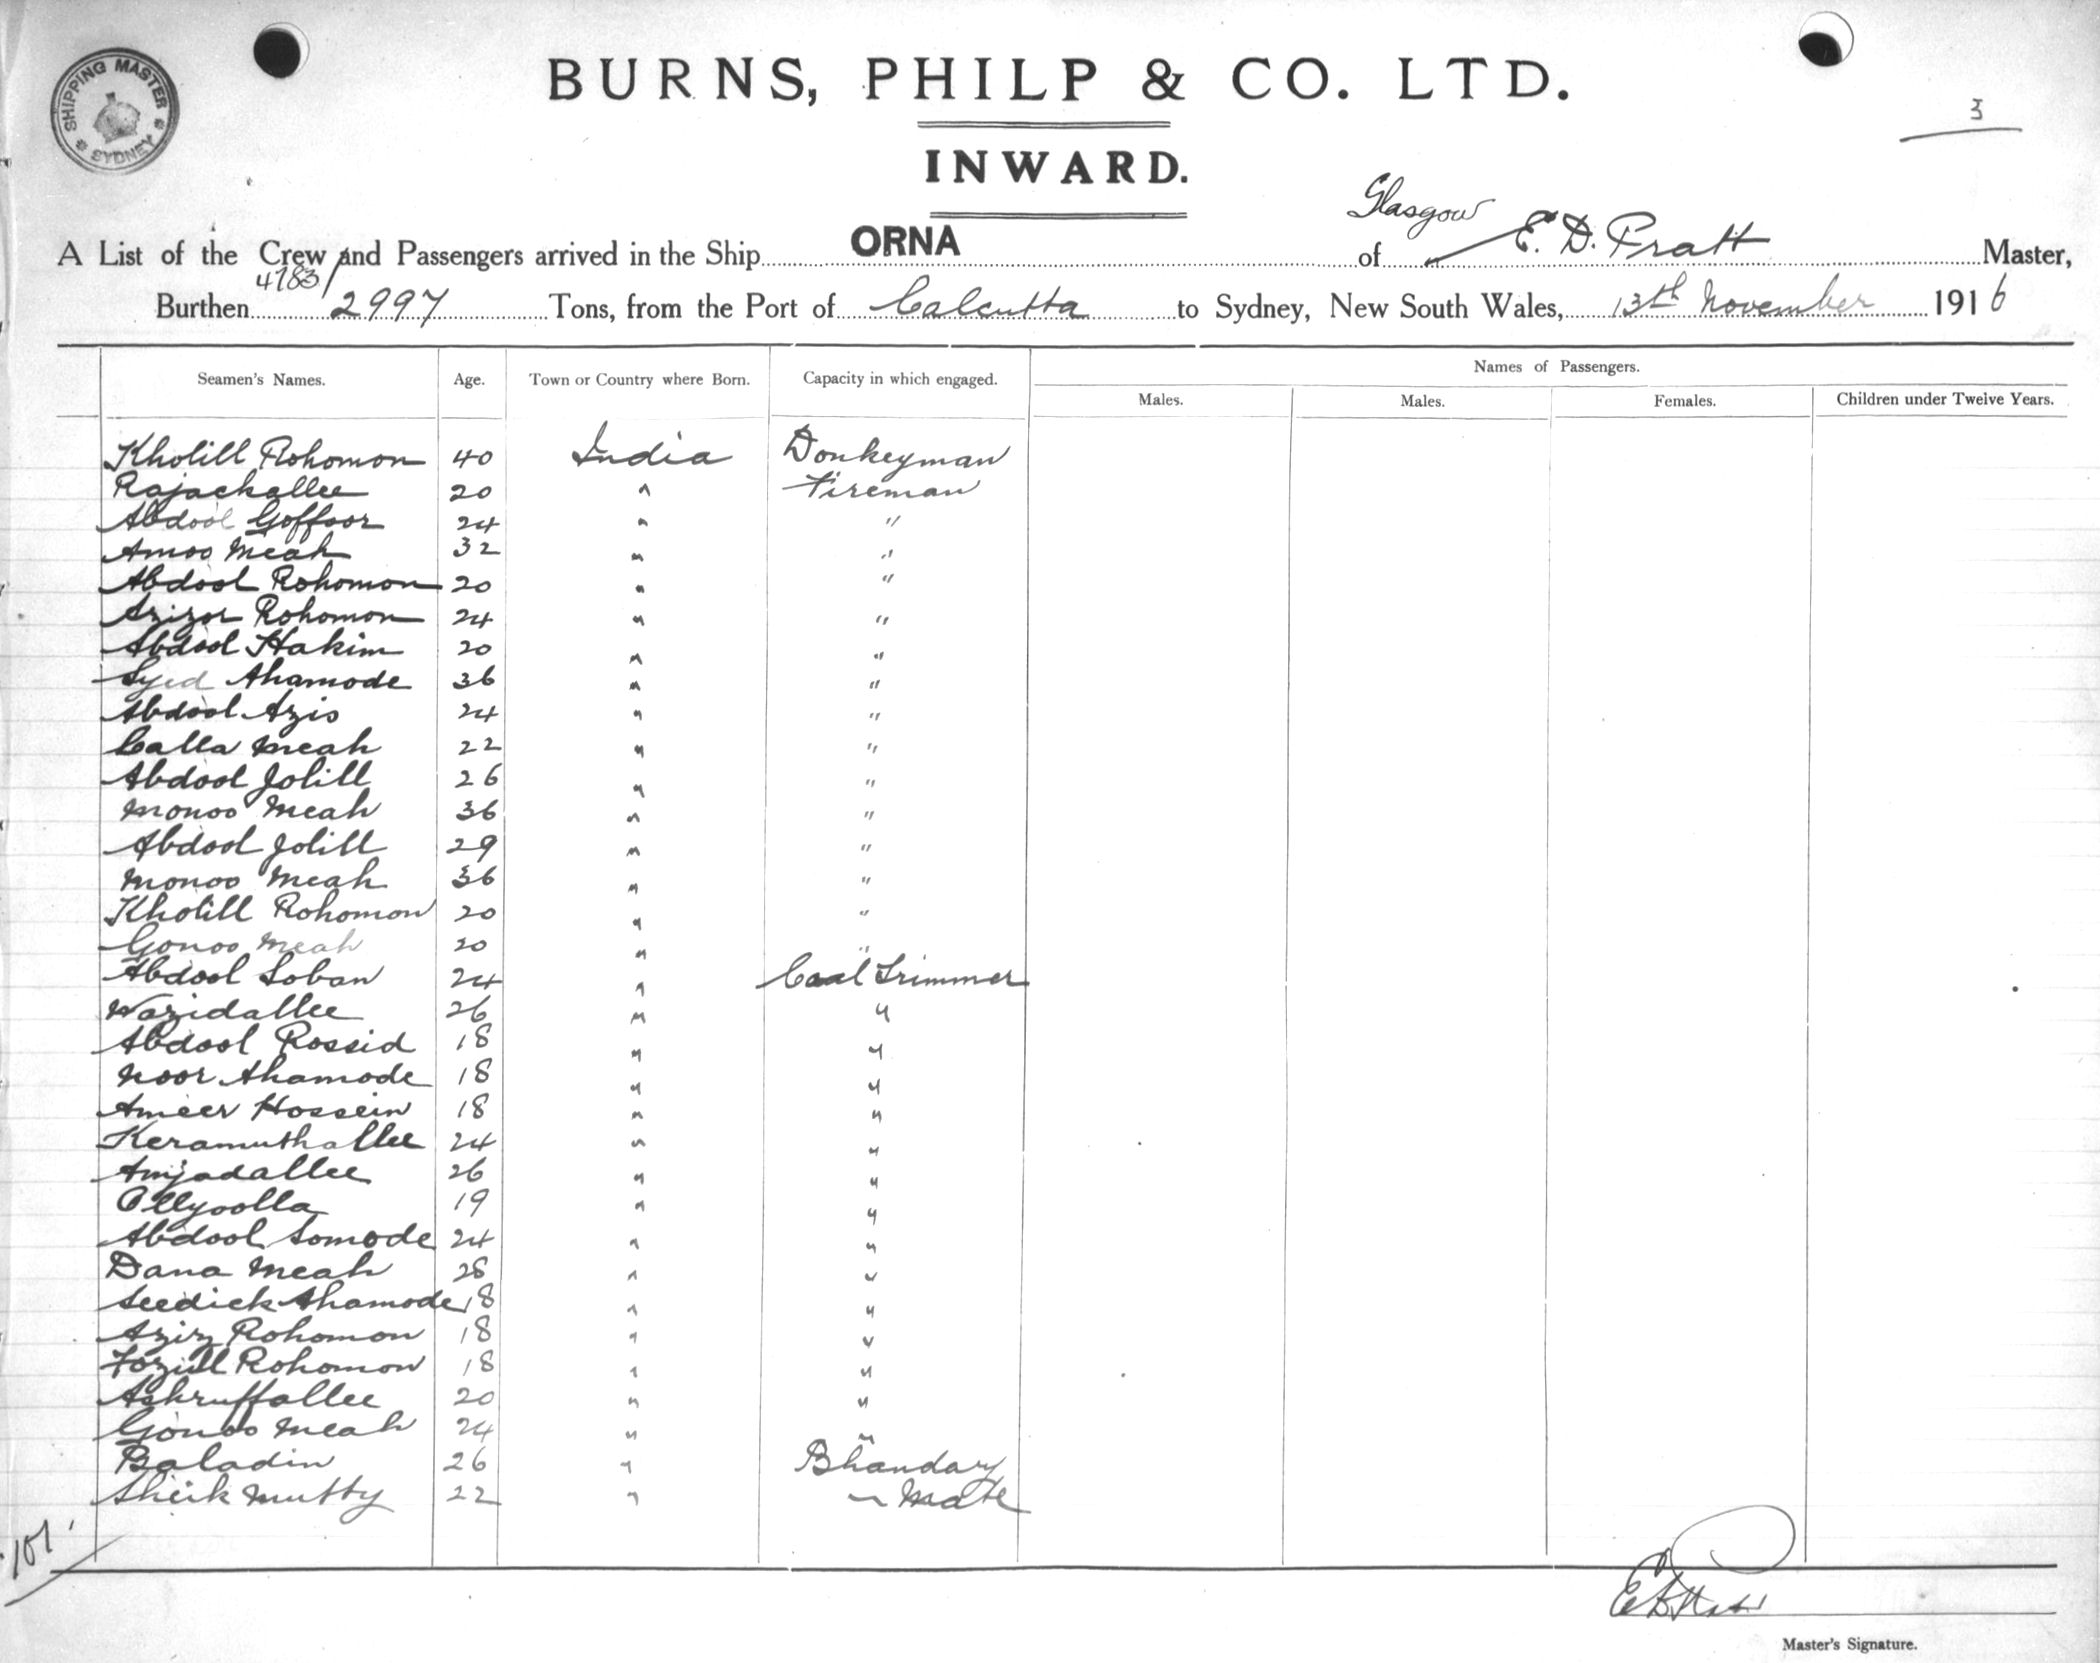 SHIPPING MASTER
SYDNEY
BURNS, PHILP & CO. LTD.
3
INWARD.
Glasgow
A List of the Crew and Passengers arrived in the Ship ORNA of E. D. Pratt Master,
4783/
Burthen 2997 Tons, from the Port of Calcutta to Sydney, New South Wales, 13th November 1916
Names of Passengers.
Seamen's Names. Age. Town or Country where Born. Capacity in which engaged.
Males. Males. Females. Children under Twelve Years.
Kholill Rohomon 40 India Donkeyman
Rajackallee 20 " Fireman
Abdool Goffoor 24 " "
Amoo Meah 32 " "
Abdool Rohomon 20 " "
Azizor Rohomon 24 " "
Abdool Hakim 20 " "
Syed Ahamode 36 " "
Abdool Azis 24 " "
Calla Meah 22 " "
Abdool Jolill 26 " "
Monoo Meah 36 " "
Abdool Jolill 29 " "
Monoo Meah 36 " "
Kholill Rohomon 20 " "
Gonoo Meah 20 " "
Abdool Soban 24 " Coal Trimmer
Wazidallee 26 " "
Abdool Rossid 18 " "
Noor Ahamode 18 " "
Ameer Hossein 18 " "
Keramuthallee 24 " "
Amjadallee 26 " "
Ollyoolla 19 " "
Abdool Somode 24 " "
Dana Meah 28 " "
Seedick Ahamode 18 " "
Aziz Rohomon 18 " "
Fozill Rohomon 18 " "
Ashruffallee 20 " "
Gonoo Meah 24 " "
Baladin 26 " Bhandary
Sheik Mutty 22 " " Mate
101
E D Pratt
Master's Signature.